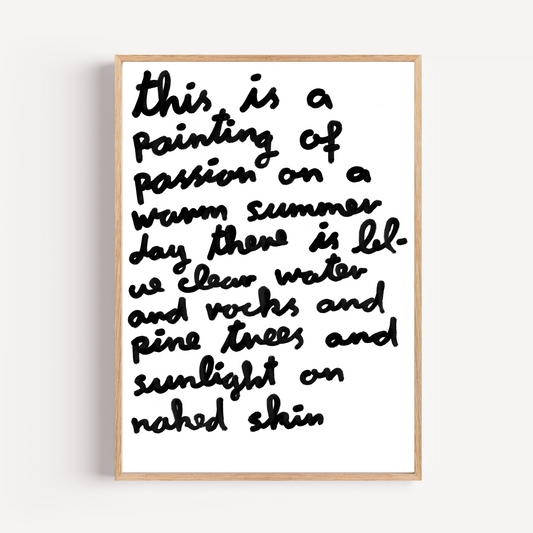 this is a
painting of
passion on a
warm summer
day there is bl-
ue clear water
and rocks and
pine trees and
sunlight on
naked skin